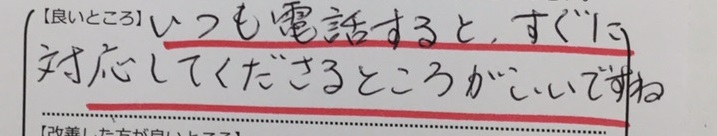 【良いところ】いつも電話すると、すぐに
対応してくださるところがいいですね
【改善した方が良いところ】